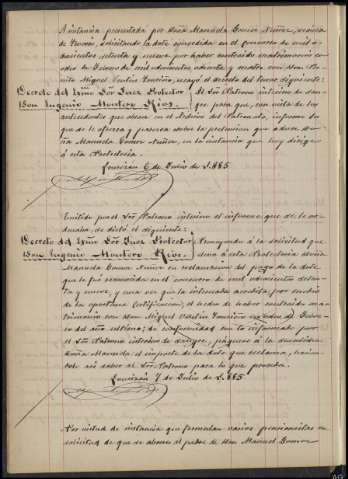 A instancia presentada por Doña Manuela Gomez Nuñez, vecina
de solicitando la dote concedida en el concurso de mil o-
chocientos setenta y nueve por haber contraido matrimonio en
de Febrero de mil ochocientos ochenta y cuatro con Don Be-
nito Miguel recayó el decreto del tenor siguiente:
Decreto del Ylmo Sor Juez Protector
Don Eugenio Montero Rios.
Al Sor Patrono interino de
para que, con vista de los
antecedentes que obran en el archivo del Patronato, informe lo
que se le ofrezca y parezca sobre la pretension que aduce Do-
ña Manuela Gomez Nuñez, en la instancia que hoy dirige
á esta Protectoria.
Lourizán 6 de Julio de 1.885
Emitido por el Sor Patrono interino el informe que se le or-
denaba, se dictó el siguiente:
Decreto del Ylmo Sor Juez Protector
Don Eugenio Montero Rios.
á la solicitud que
elevó á esta Protectoria Doña
Manuela Gomez Nuñez en reclamacion del pago de la dote
que le fué en el concurso de mil ochocientos seten-
ta y nueve, y una vez que la interesada acredita por medio
de la oportuna certificacion, el hecho de haber contraido ma-
trimonio con Don Miguel en de Febre-
ro del año último; de conformidad con lo informado por
el Sor Patrono interino de páguese á la
Doña Manuela el importe de la dote que reclama,
se así saber al Sor Patrono para lo que proceda.
Lourizán 7 de Julio de 1.885
Por virtud de instancia que formulan varios pensionistas en
solicitud de que se abone al padre de Don Manuel